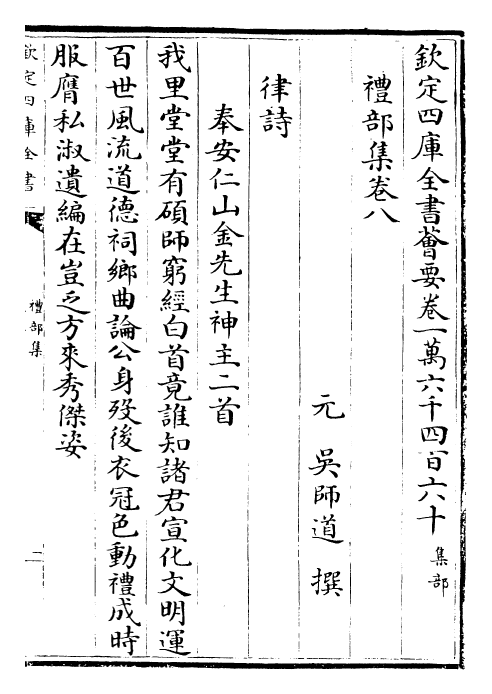 欽定四庫全書薈要卷一萬六千四百六十 集部
禮部集卷八
元 吳師道 撰
律詩
奉安仁山金先生神主二首
我里堂堂有碩師窮經白首竟誰知諸君宣化文明運
百世風流道德祠鄉曲論公身歿後衣冠色動禮成時
服膺私淑遺編在豈乏方來秀傑姿
欽定四庫全書
禮部集
二